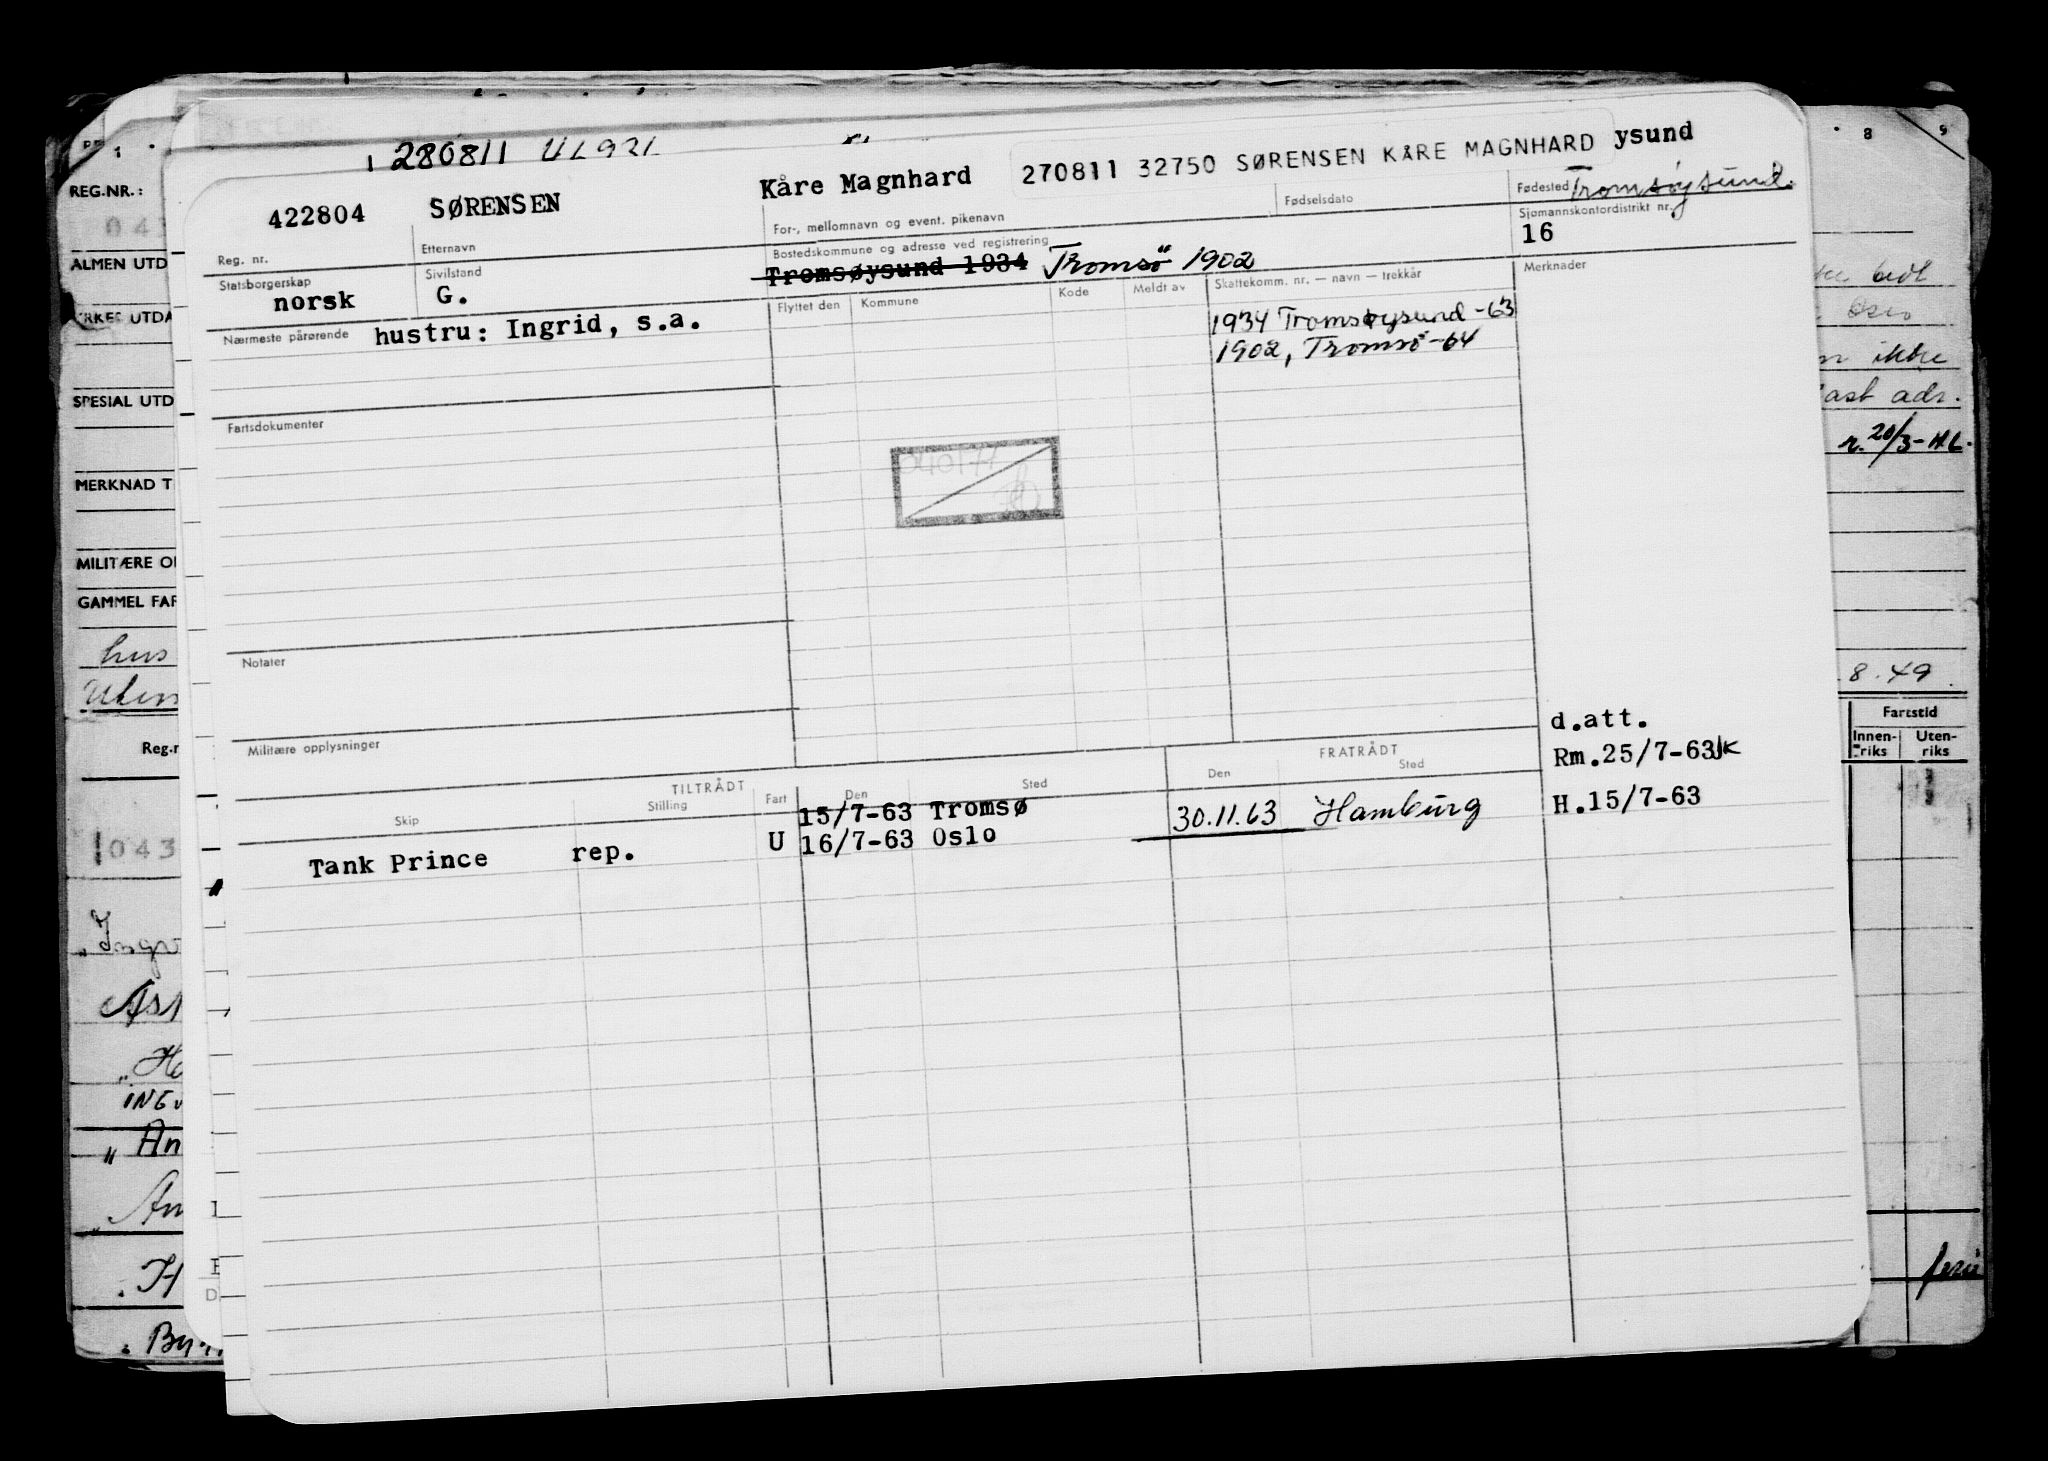 280811
270811 32750 SØRENSEN KÅRE MAGNHARD ysund
422804 SØRENSEN Kåre Magnhard Tromsøysund.
Reg. nr. Etternavn For-, mellomnavn og event. pikenavn Fødselsdato Fødested
Statsborgerskap Sivilstand Bostedskommune og adresse ved registrering Sjømannskontordistrikt nr.
norsk G. Tromsøysund 1934 Tromsö 1902 16
Nærmeste pårørende hustru: Ingrid, s.a.
Flyttet den Kommune Kode Meldt av Skattekomm. nr. — navn — trekkår Merknader
1934 Tromsøysund-63
1902, Tromsö-64
Fartsdokumenter
Notater
Militære opplysninger
d.att.
Rm.25/7-63
H.15/7-63
TILTRÅDT FRATRÅDT
Skip Stilling Fart Den Sted Den Sted
15/7-63 Tromsø
Tank Prince rep. U 16/7-63 Oslo 30.11.63 Hamburg
REG.NR.:
043
ALMEN UTD
YRKES UTDA
SPESIAL UTD
MERKNAD T
MILITÆRE O
GAMMEL FAR
hus
Uten
Reg.n
043
Ingv
Ast
Ha
An
An
H
8 9
ikke
ast adr.
20/3-
8.49
Fartstid
Innen-riks Uten-riks
ferie